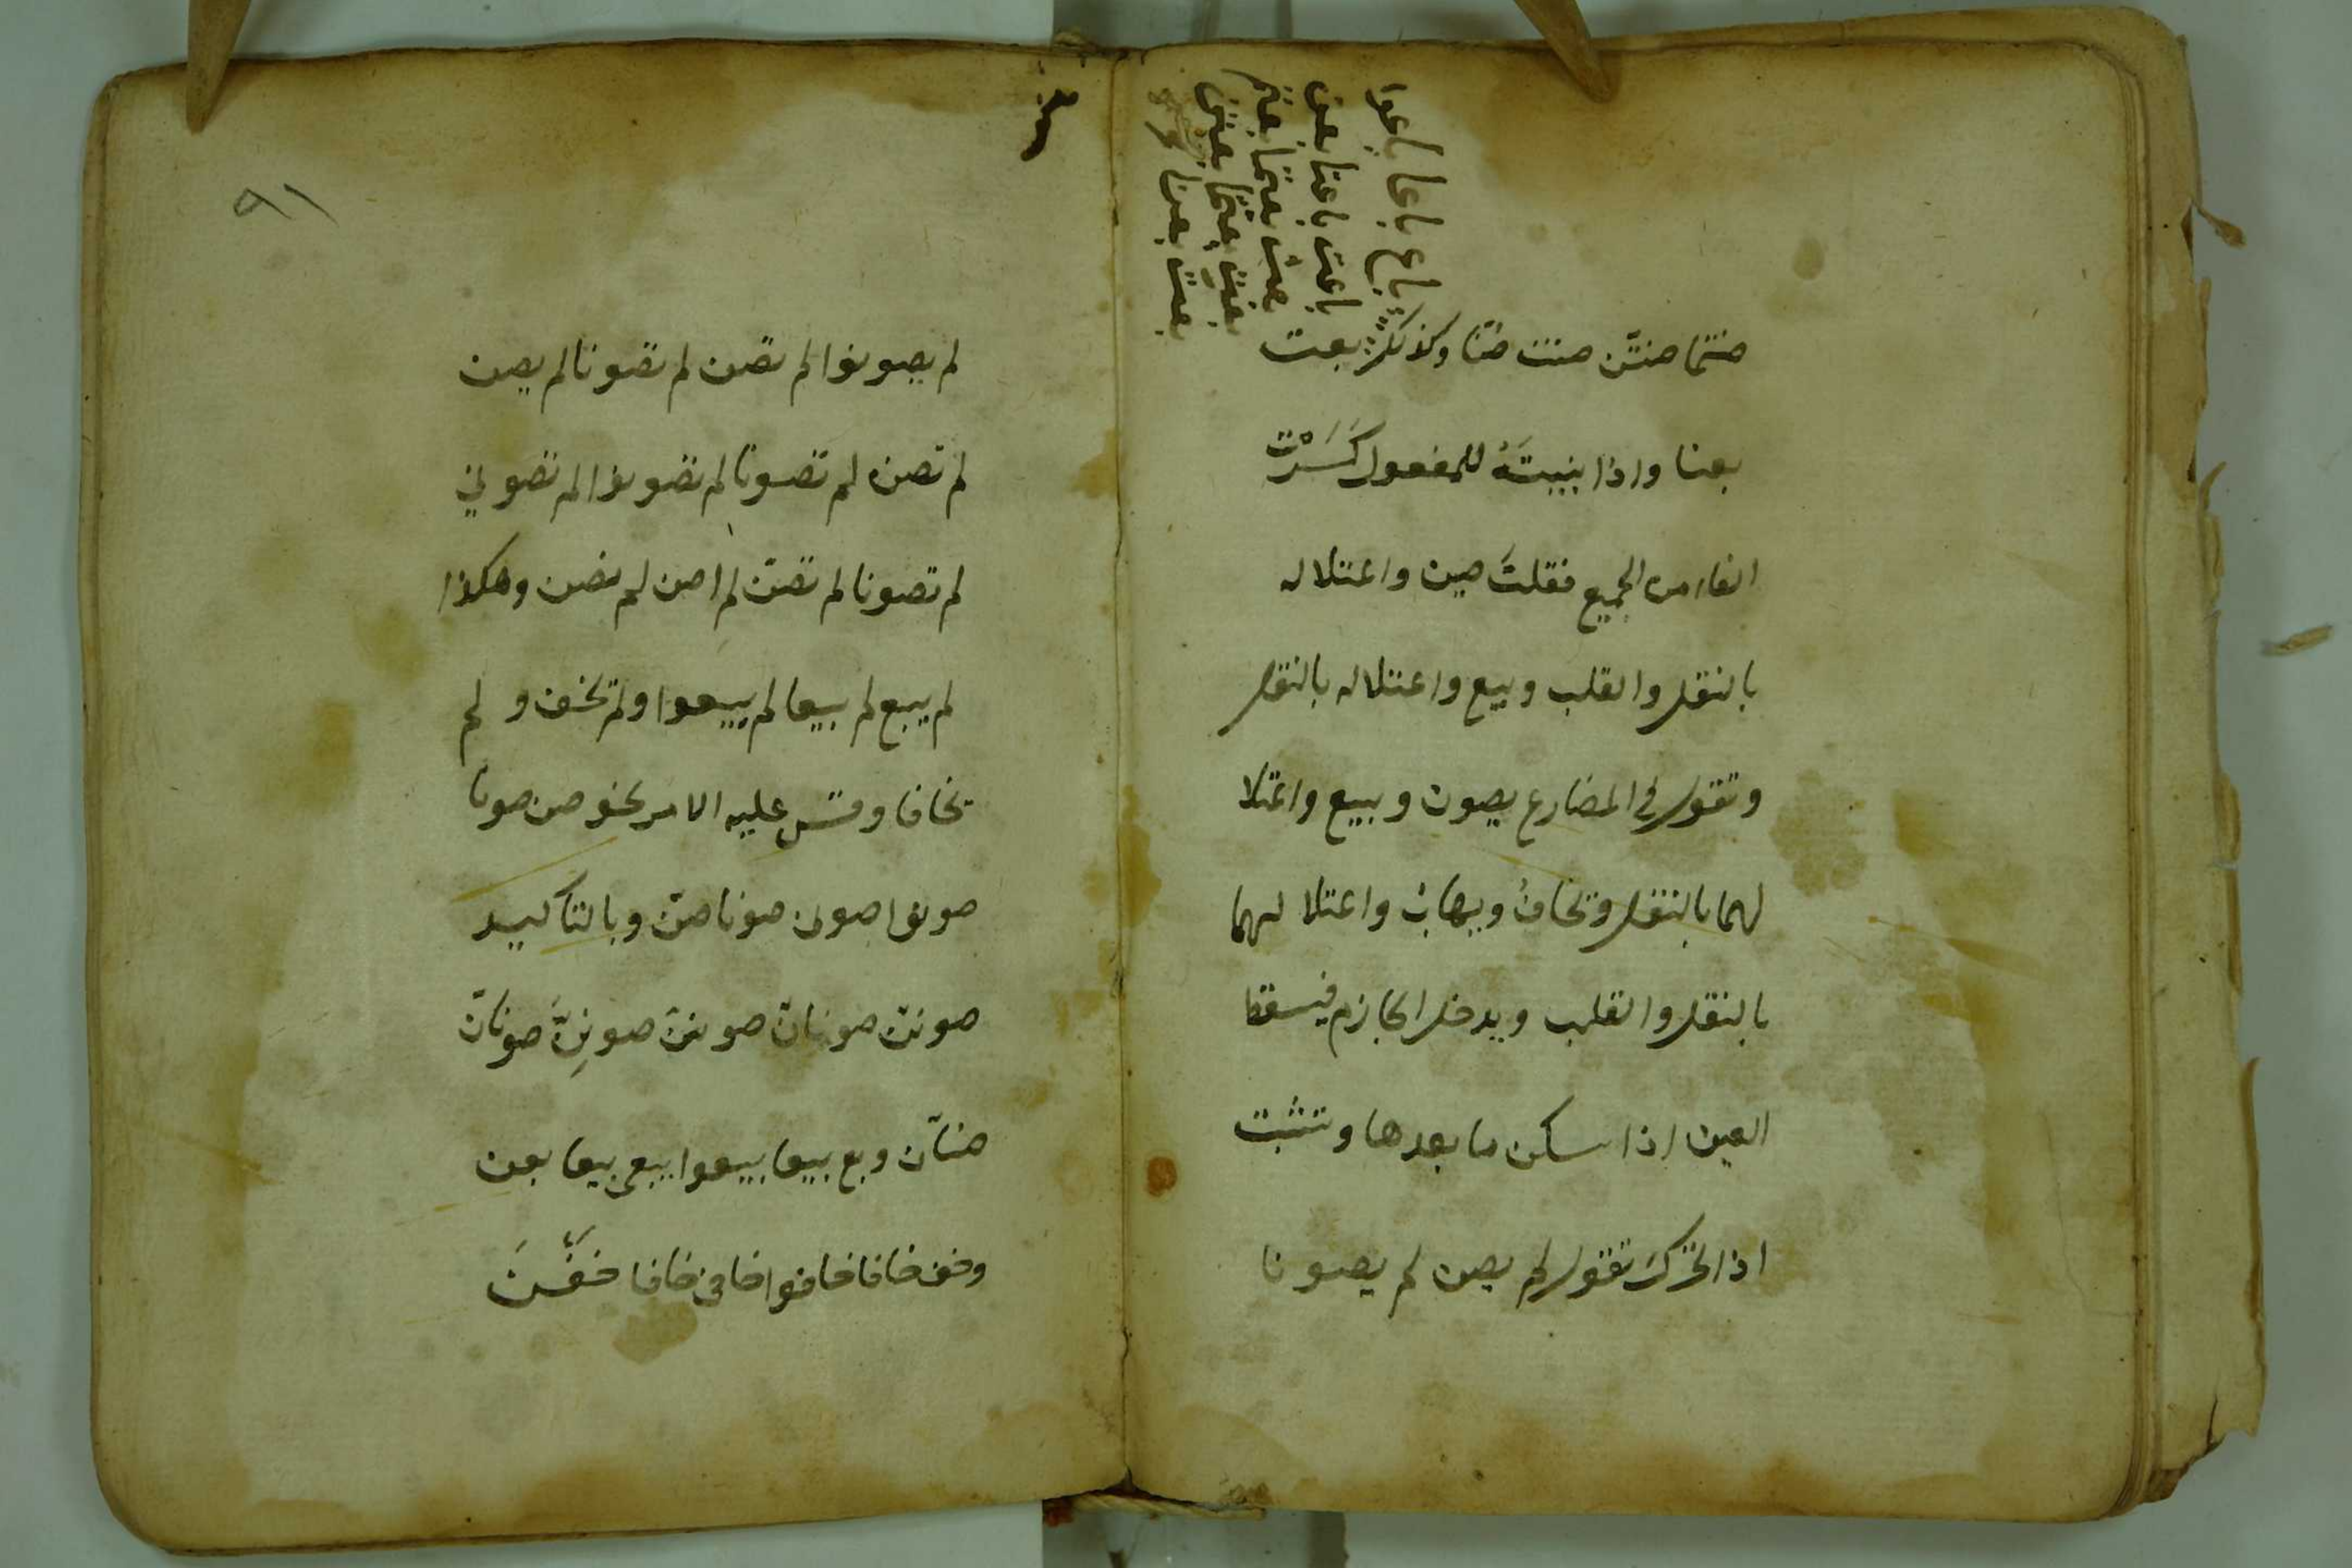 صنتما صنتن صنت صنا وكذلك بعت
باع باعا باعوا
باعت باعتا بعن
بعت بعتما بعتم
بعت بعتما بعتن
بعت بعنا
بعنا واذا بنيتَهُ للمفعول كَسَرْتَ
الفاء من الجميع فقلتَ صين واعتلاله
بالنقل والقلب وبيع واعتلاله بالنقل
وتقول في المضارع يصون ويبيع واعتلا
لهما بالنقل ويخافُ ويهابُ واعتلا لهما
بالنقل والقلب ويدخل الجازم فيسقط
العين اذا سكن ما بعدها وتثبت
اذا تحرك تقول لم يصن لم يصونا
٩١
لم يصونوا لم تصن لم تصونا لم يصن
لم تصن لم تصونا لم تصونوا لم تصوني
لم تصونا لم تصنّ لم اصن لم نصن وهكذا
لم يبع لم يبيعا لم يبيعوا ولم يخف و لم
يخافا وقس عليه الامر نحو صن صونا
صونوا صونى صونا صنّ وبالتاكيد
صوننّ صونانّ صوننّ صونِنَّ صونانّ
صنانّ وبع بيعا بيعوا بيعى بيعا بعن
وخف خافا خافوا خافى خافا خفْنَ